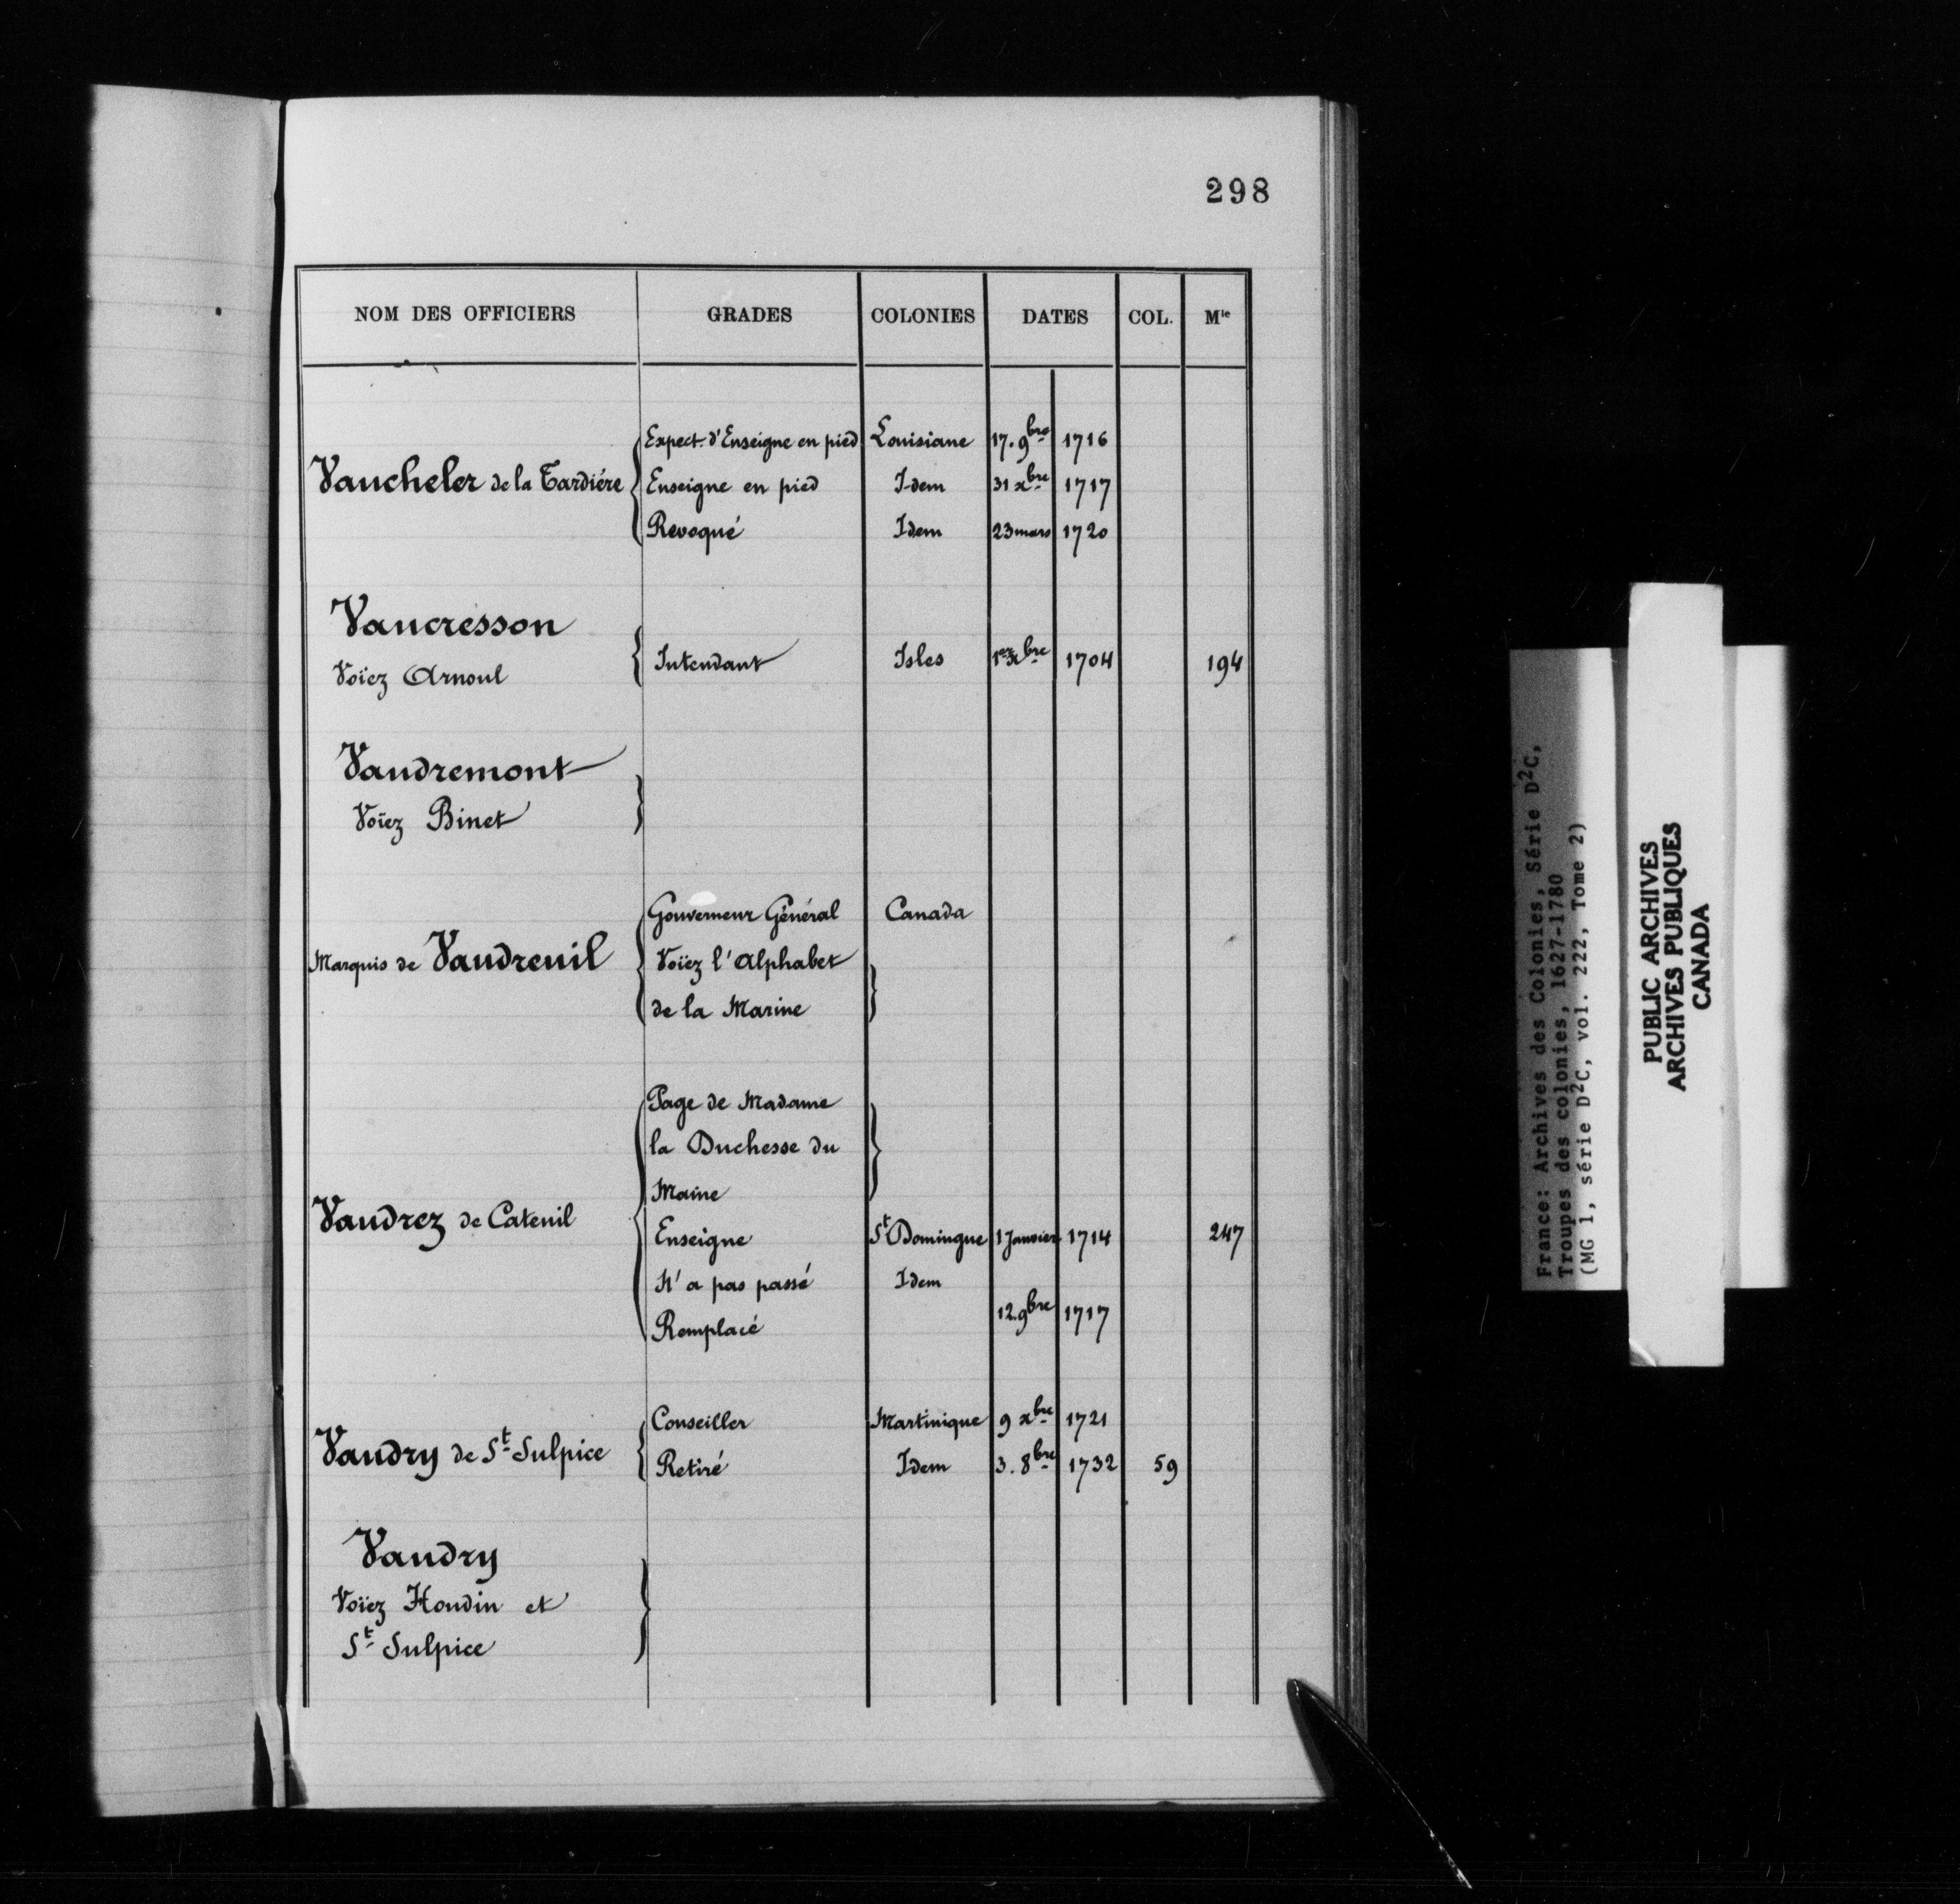 298
NOM DES OFFICIERS GRADES COLONIES DATES COL. Mle
Expect. d'Enseigne en pied Louisiane 17. 9bre 1716
Vaucheler de la Tardiére Enseigne en pied Idem 31 xbre 1717
Revoqué Idem 23 mars 1720
Vaucresson
Voïez Arnoul Intendant Isles 1er xbre 1704 194
Vaudremont
Voïez Binet
Gouverneur Général Canada
Marquis de Vaudreuil Voïez l'Alphabet
de la Marine
Page de Madame
la Duchesse du
Maine
Vaudrez de Cateuil Enseigne St Domingue 1 Janvier 1714 247
N'a pas passé Idem
Remplacé 12. 9bre 1717
Conseiller Martinique 9 xbre 1721
Vaudry de St Sulpice Retiré Idem 3. 8bre 1732 59
Vaudry
Voïez Houdin et
St Sulpice
France: Archives des Colonies, Série D2C,
Troupes des colonies, 1627-1780
(MG 1, série D2C, vol. 222, Tome 2)
PUBLIC ARCHIVES
ARCHIVES PUBLIQUES
CANADA